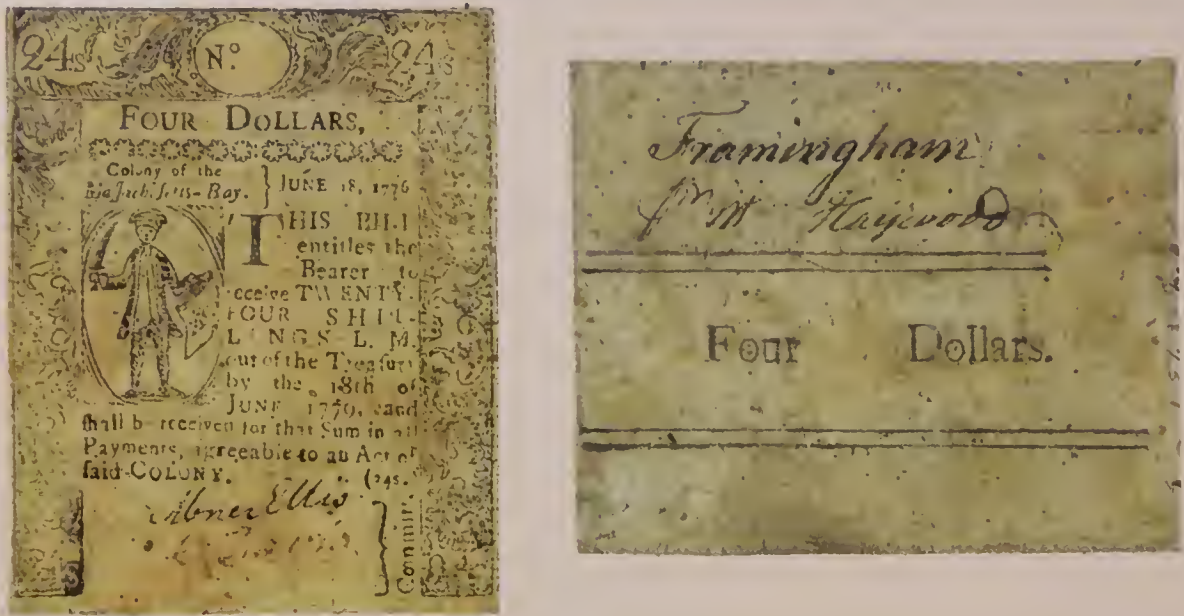 24s No. 24s
FOUR DOLLARS,
Colony of the
Maſſachuſetts-Bay. } JUNE 18, 1776
THIS BILL
entitles the
Bearer to
receive TWENTY-
FOUR SHIL-
LINGS L. M.
out of the Treaſury
by the 18th of
JUNE 1779, and
ſhall be received for that Sum in all
Payments, agreeable to an Act of
ſaid COLONY. (24s.
Abner Ellis
Committ
Framingham
Haywood
Four Dollars.